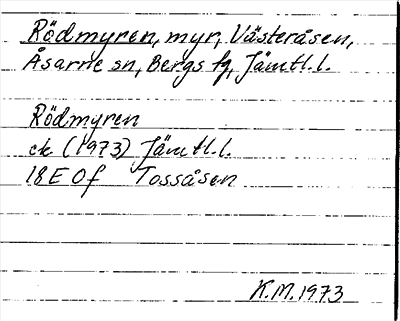 Rödmyren, myr, Västeråsen,
Åsarne sn, Bergs tg, Jämtl. l.
Rödmyren
ek (1973) Jämtl. l.
18E 0f Tossåsen
K.M. 1973